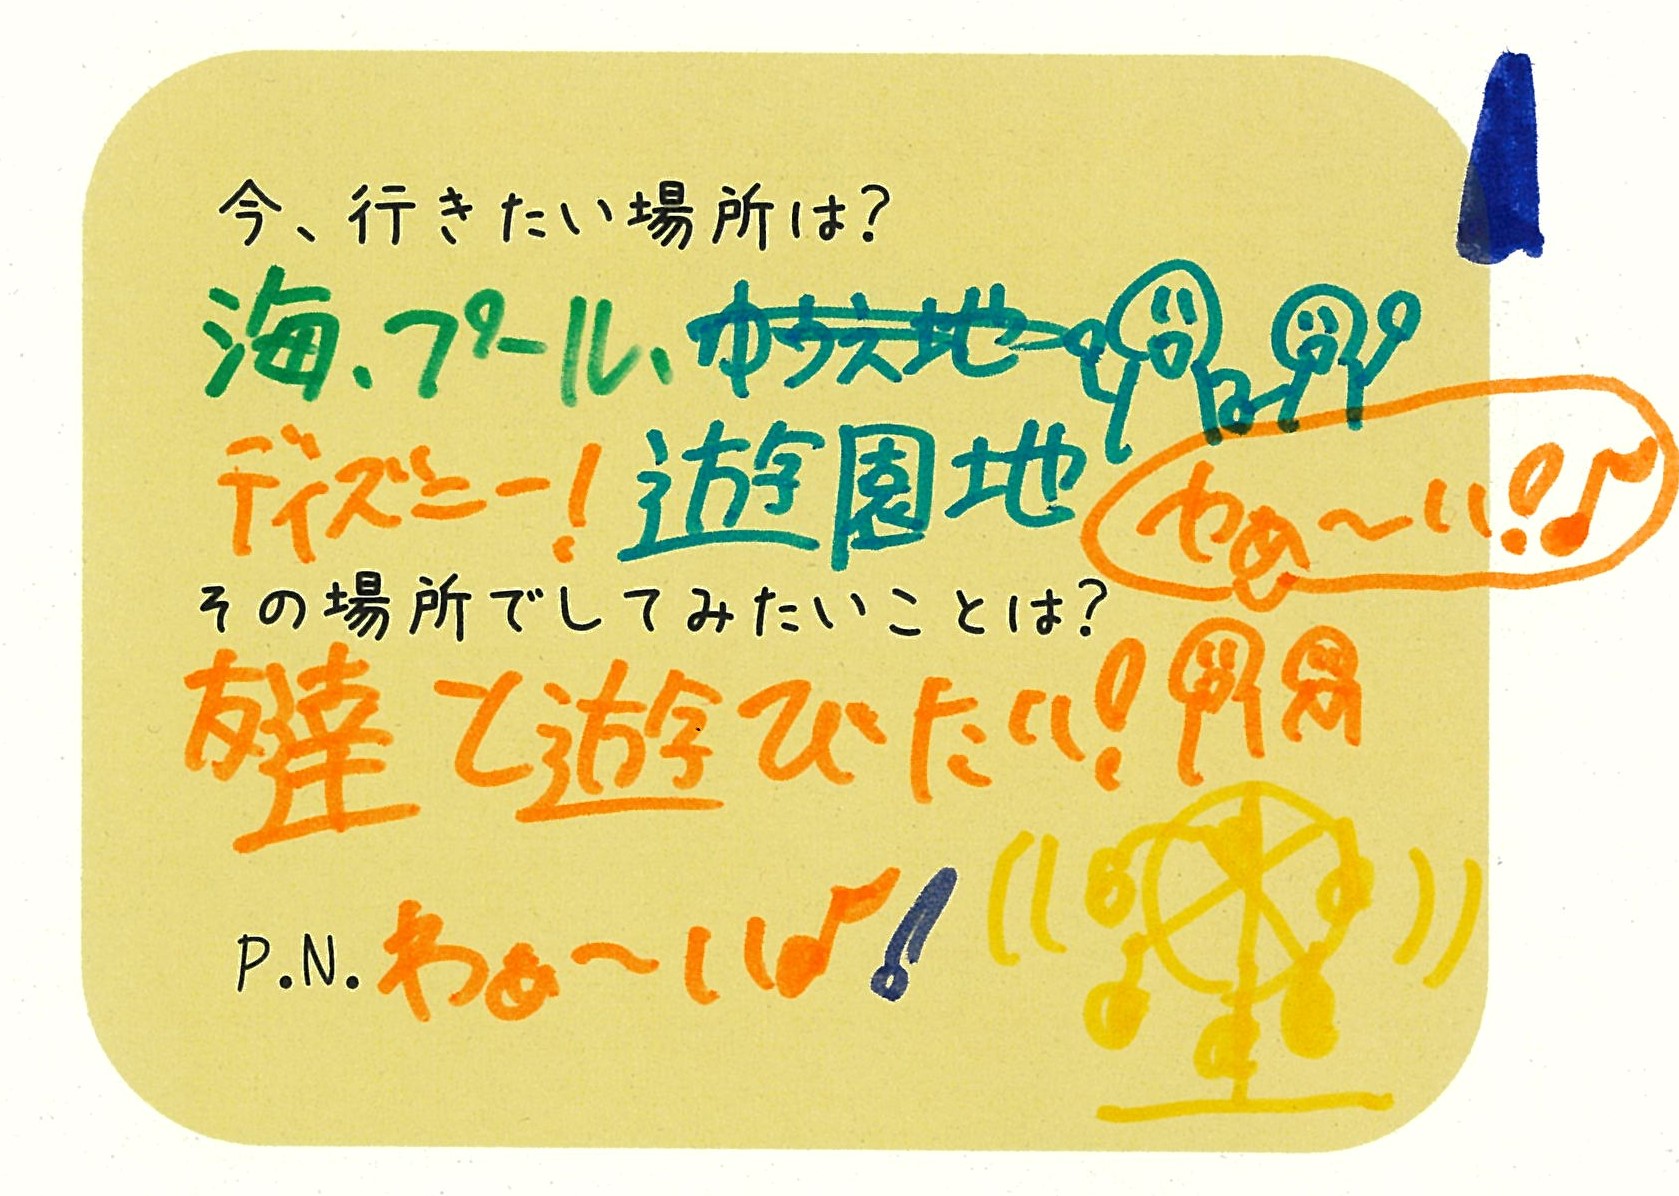 今、行きたい場所は?
海、プール、ゆうえ地
ディズニー!遊園地
わぁ〜い!♪
その場所でしてみたいことは?
友達と遊びたい!
P.N.わぁ〜い♪!